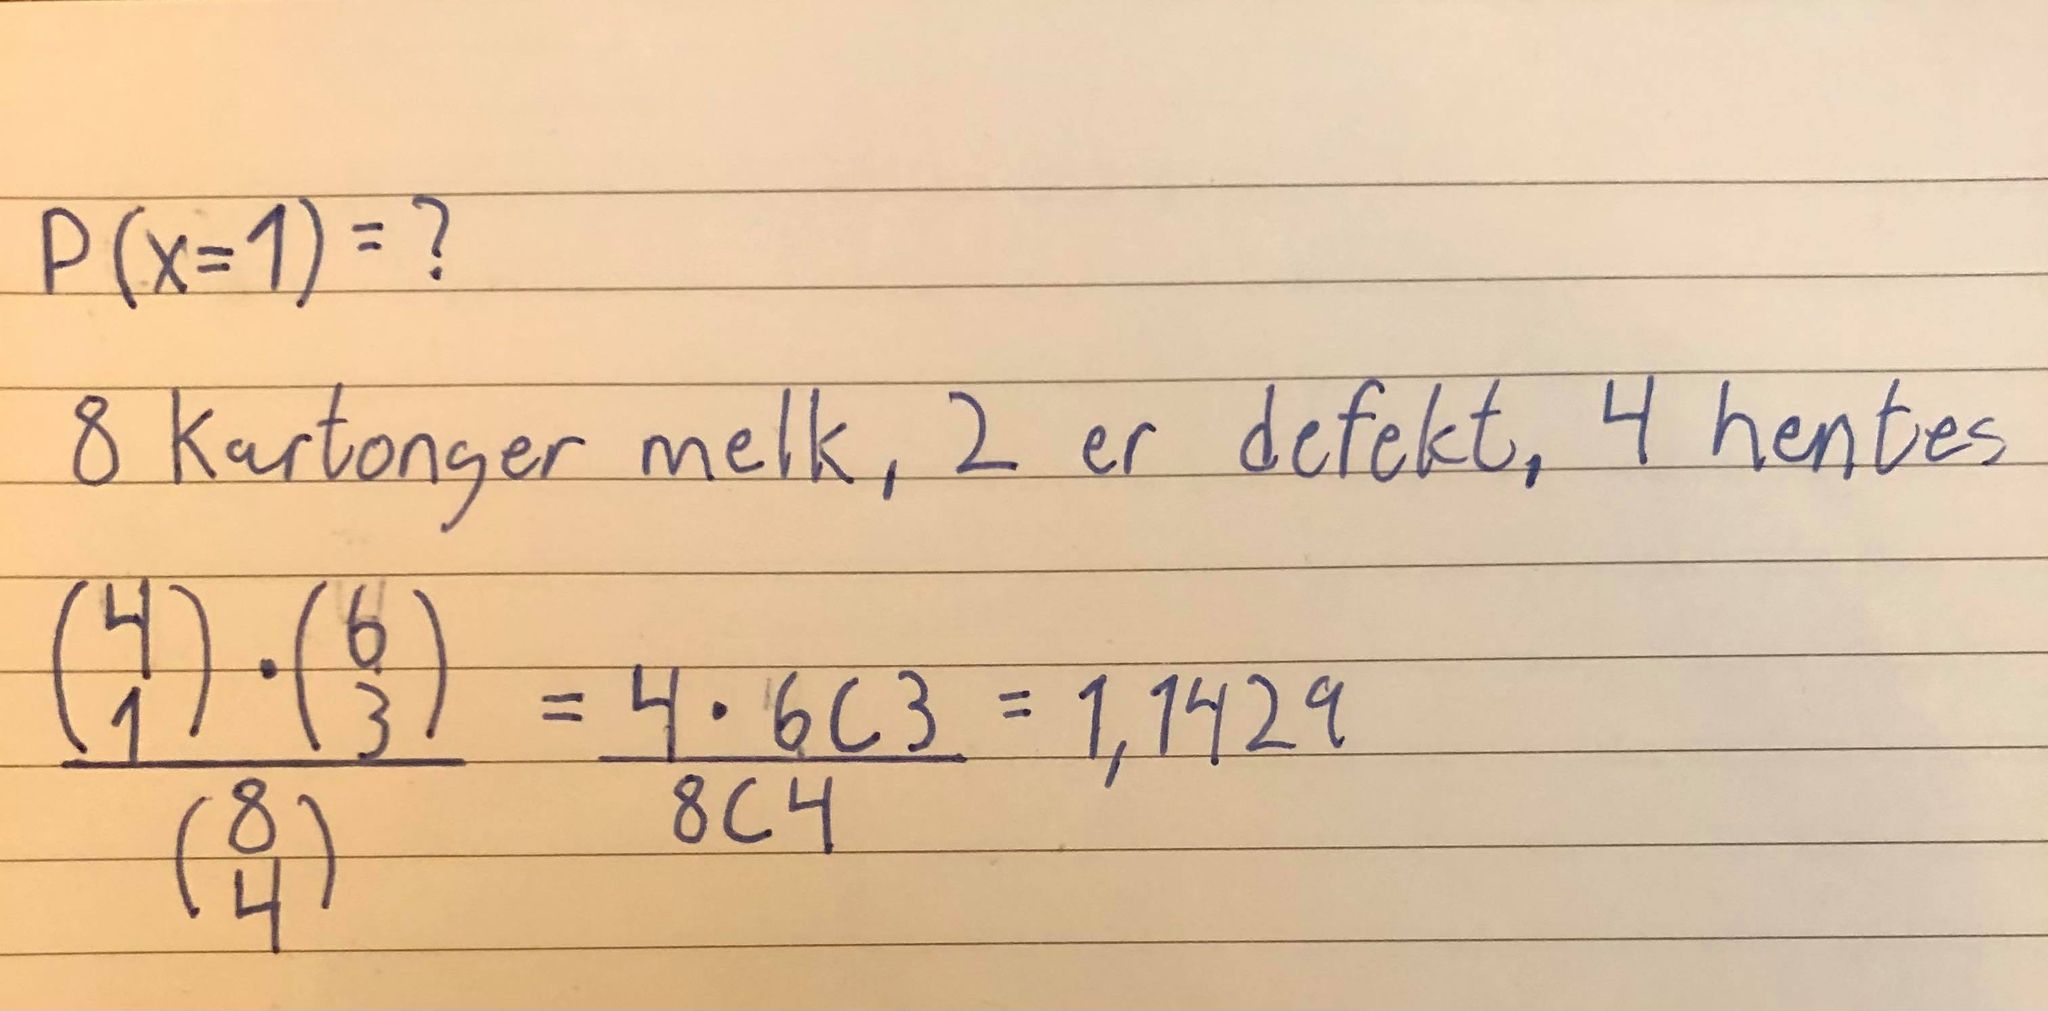 P(x=1) = ?
8 kartonger melk, 2 er defekt, 4 hentes
(4 1) · (6 3) / (8 4) = 4 · 6C3 / 8C4 = 1,1429